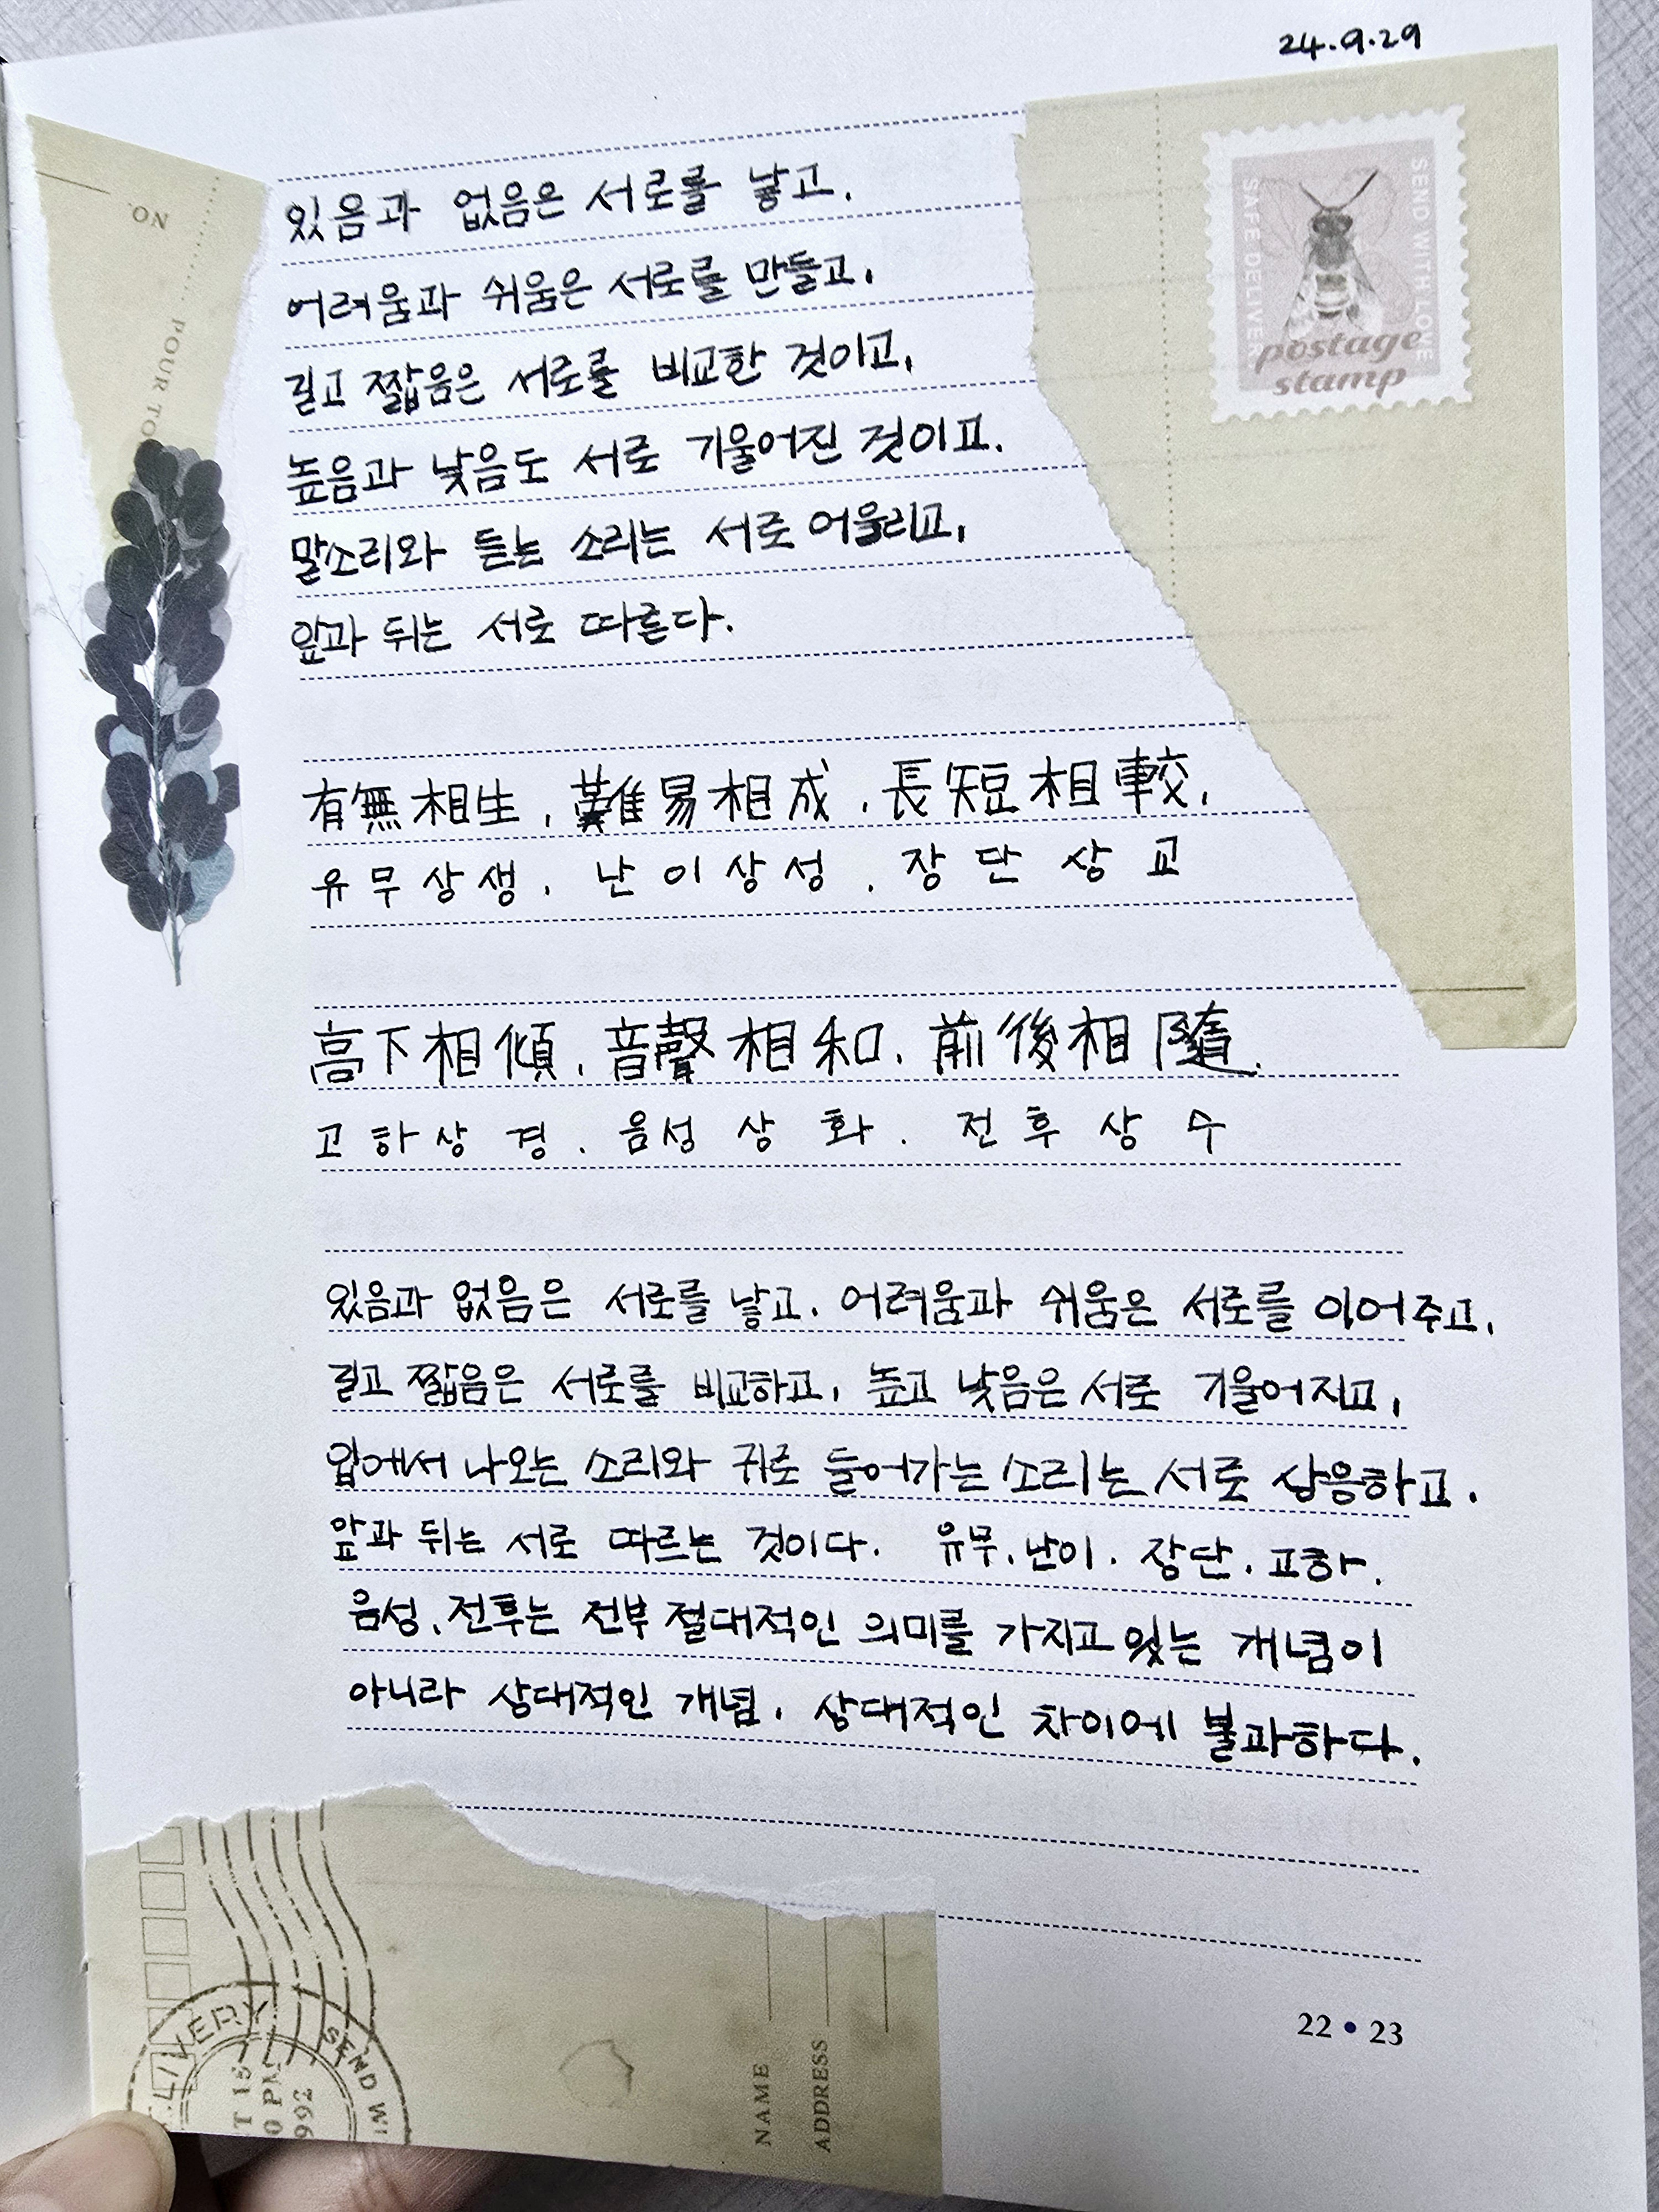 24.9.29
NO.
POUR TO
SEND WITH LOVE
SAFE DELIVER
postage
stamp
있음과 없음은 서로를 낳고,
어려움과 쉬움은 서로를 만들고,
길고 짧음은 서로를 비교한 것이고,
높음과 낮음도 서로 기울어진 것이고.
말소리와 듣는 소리는 서로 어울리고,
앞과 뒤는 서로 따른다.
有無相生, 難易相成, 長短相較,
유무상생, 난이상성, 장단상교
高下相傾, 音聲相和, 前後相隨.
고하상경. 음성상화. 전후상수
있음과 없음은 서로를 낳고, 어려움과 쉬움은 서로를 이어주고,
길고 짧음은 서로를 비교하고, 높고 낮음은 서로 기울어지고,
입에서 나오는 소리와 귀로 들어가는 소리는 서로 상응하고.
앞과 뒤는 서로 따르는 것이다. 유무, 난이, 장단, 고하.
음성, 전후는 전부 절대적인 의미를 가지고 있는 개념이
아니라 상대적인 개념, 상대적인 차이에 불과하다.
LIVERY
SEND WI
T 15
0 PM
992
NAME
ADDRESS
22 • 23